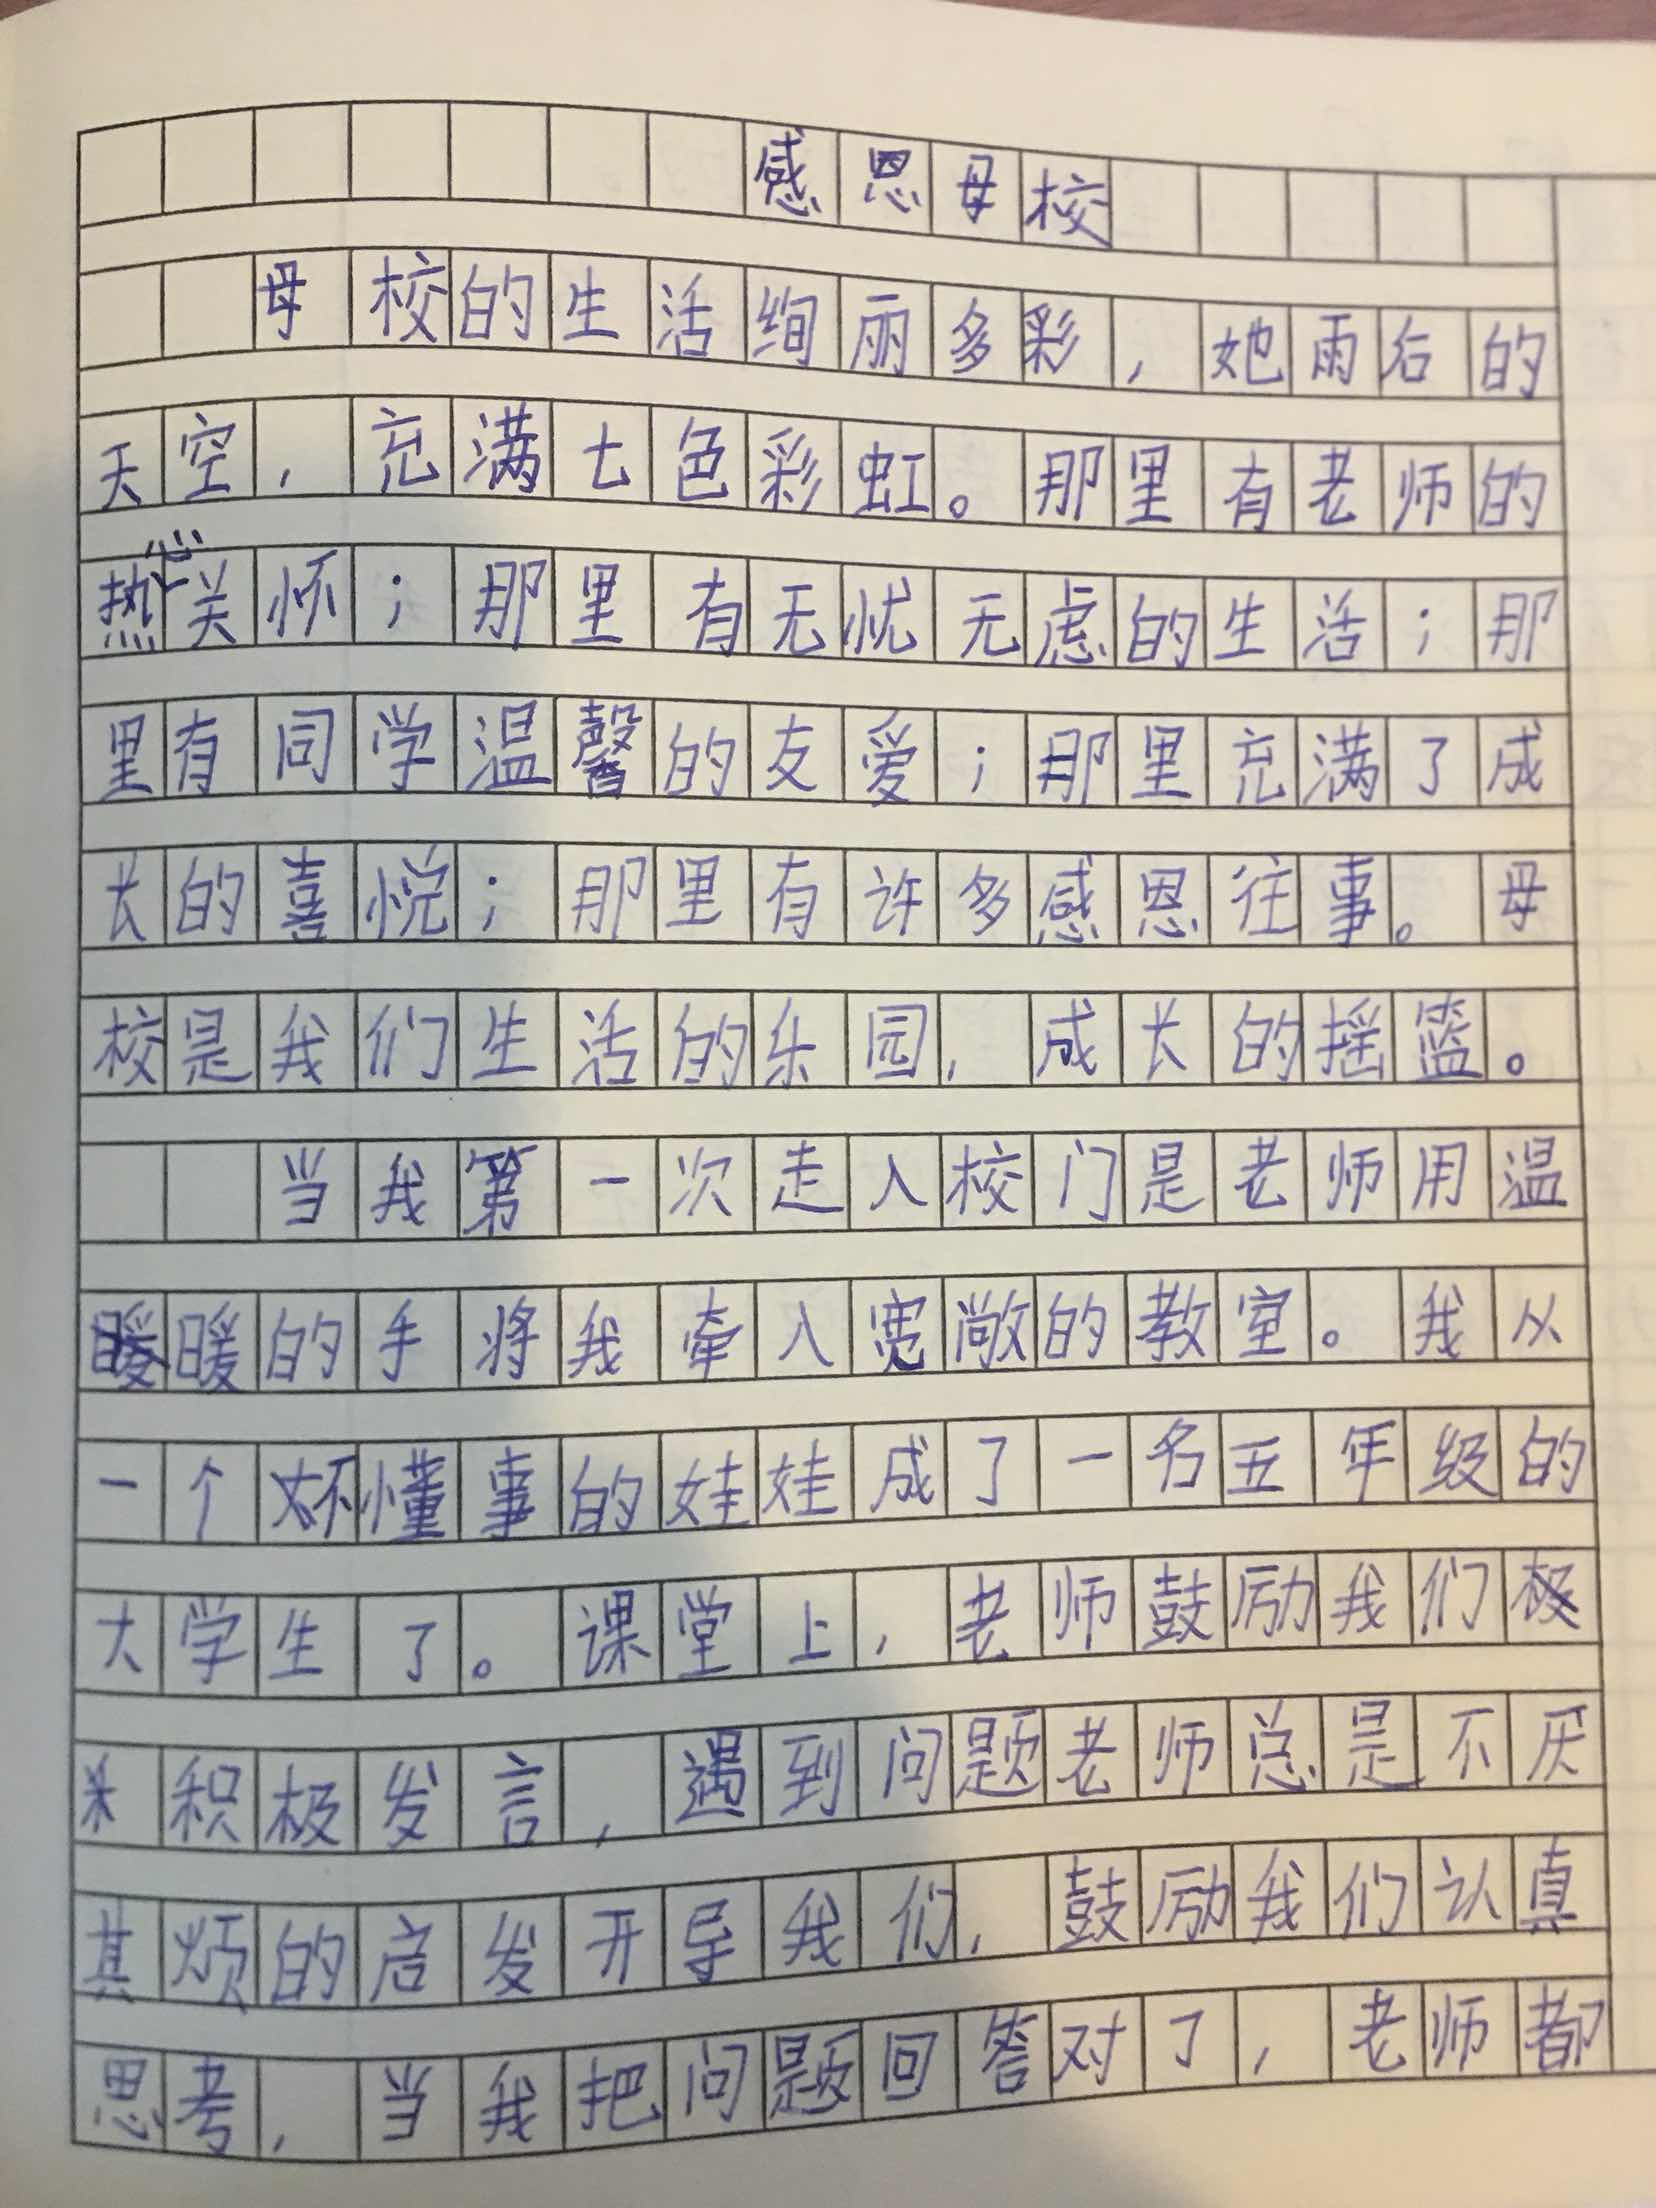 感恩母校
母校的生活绚丽多彩，她雨后的
天空，充满七色彩虹。那里有老师的
热心关怀；那里有无忧无虑的生活；那
里有同学温馨的友爱；那里充满了成
长的喜悦；那里有许多感恩往事。母
校是我们生活的乐园，成长的摇篮。
当我第一次走入校门是老师用温
暖的手将我牵入宽敞的教室。我从
一个不懂事的娃娃成了一名五年级的
大学生了。课堂上，老师鼓励我们
积极发言，遇到问题老师总是不厌
其烦的启发开导我们，鼓励我们认真
思考，当我把问题回答对了，老师都